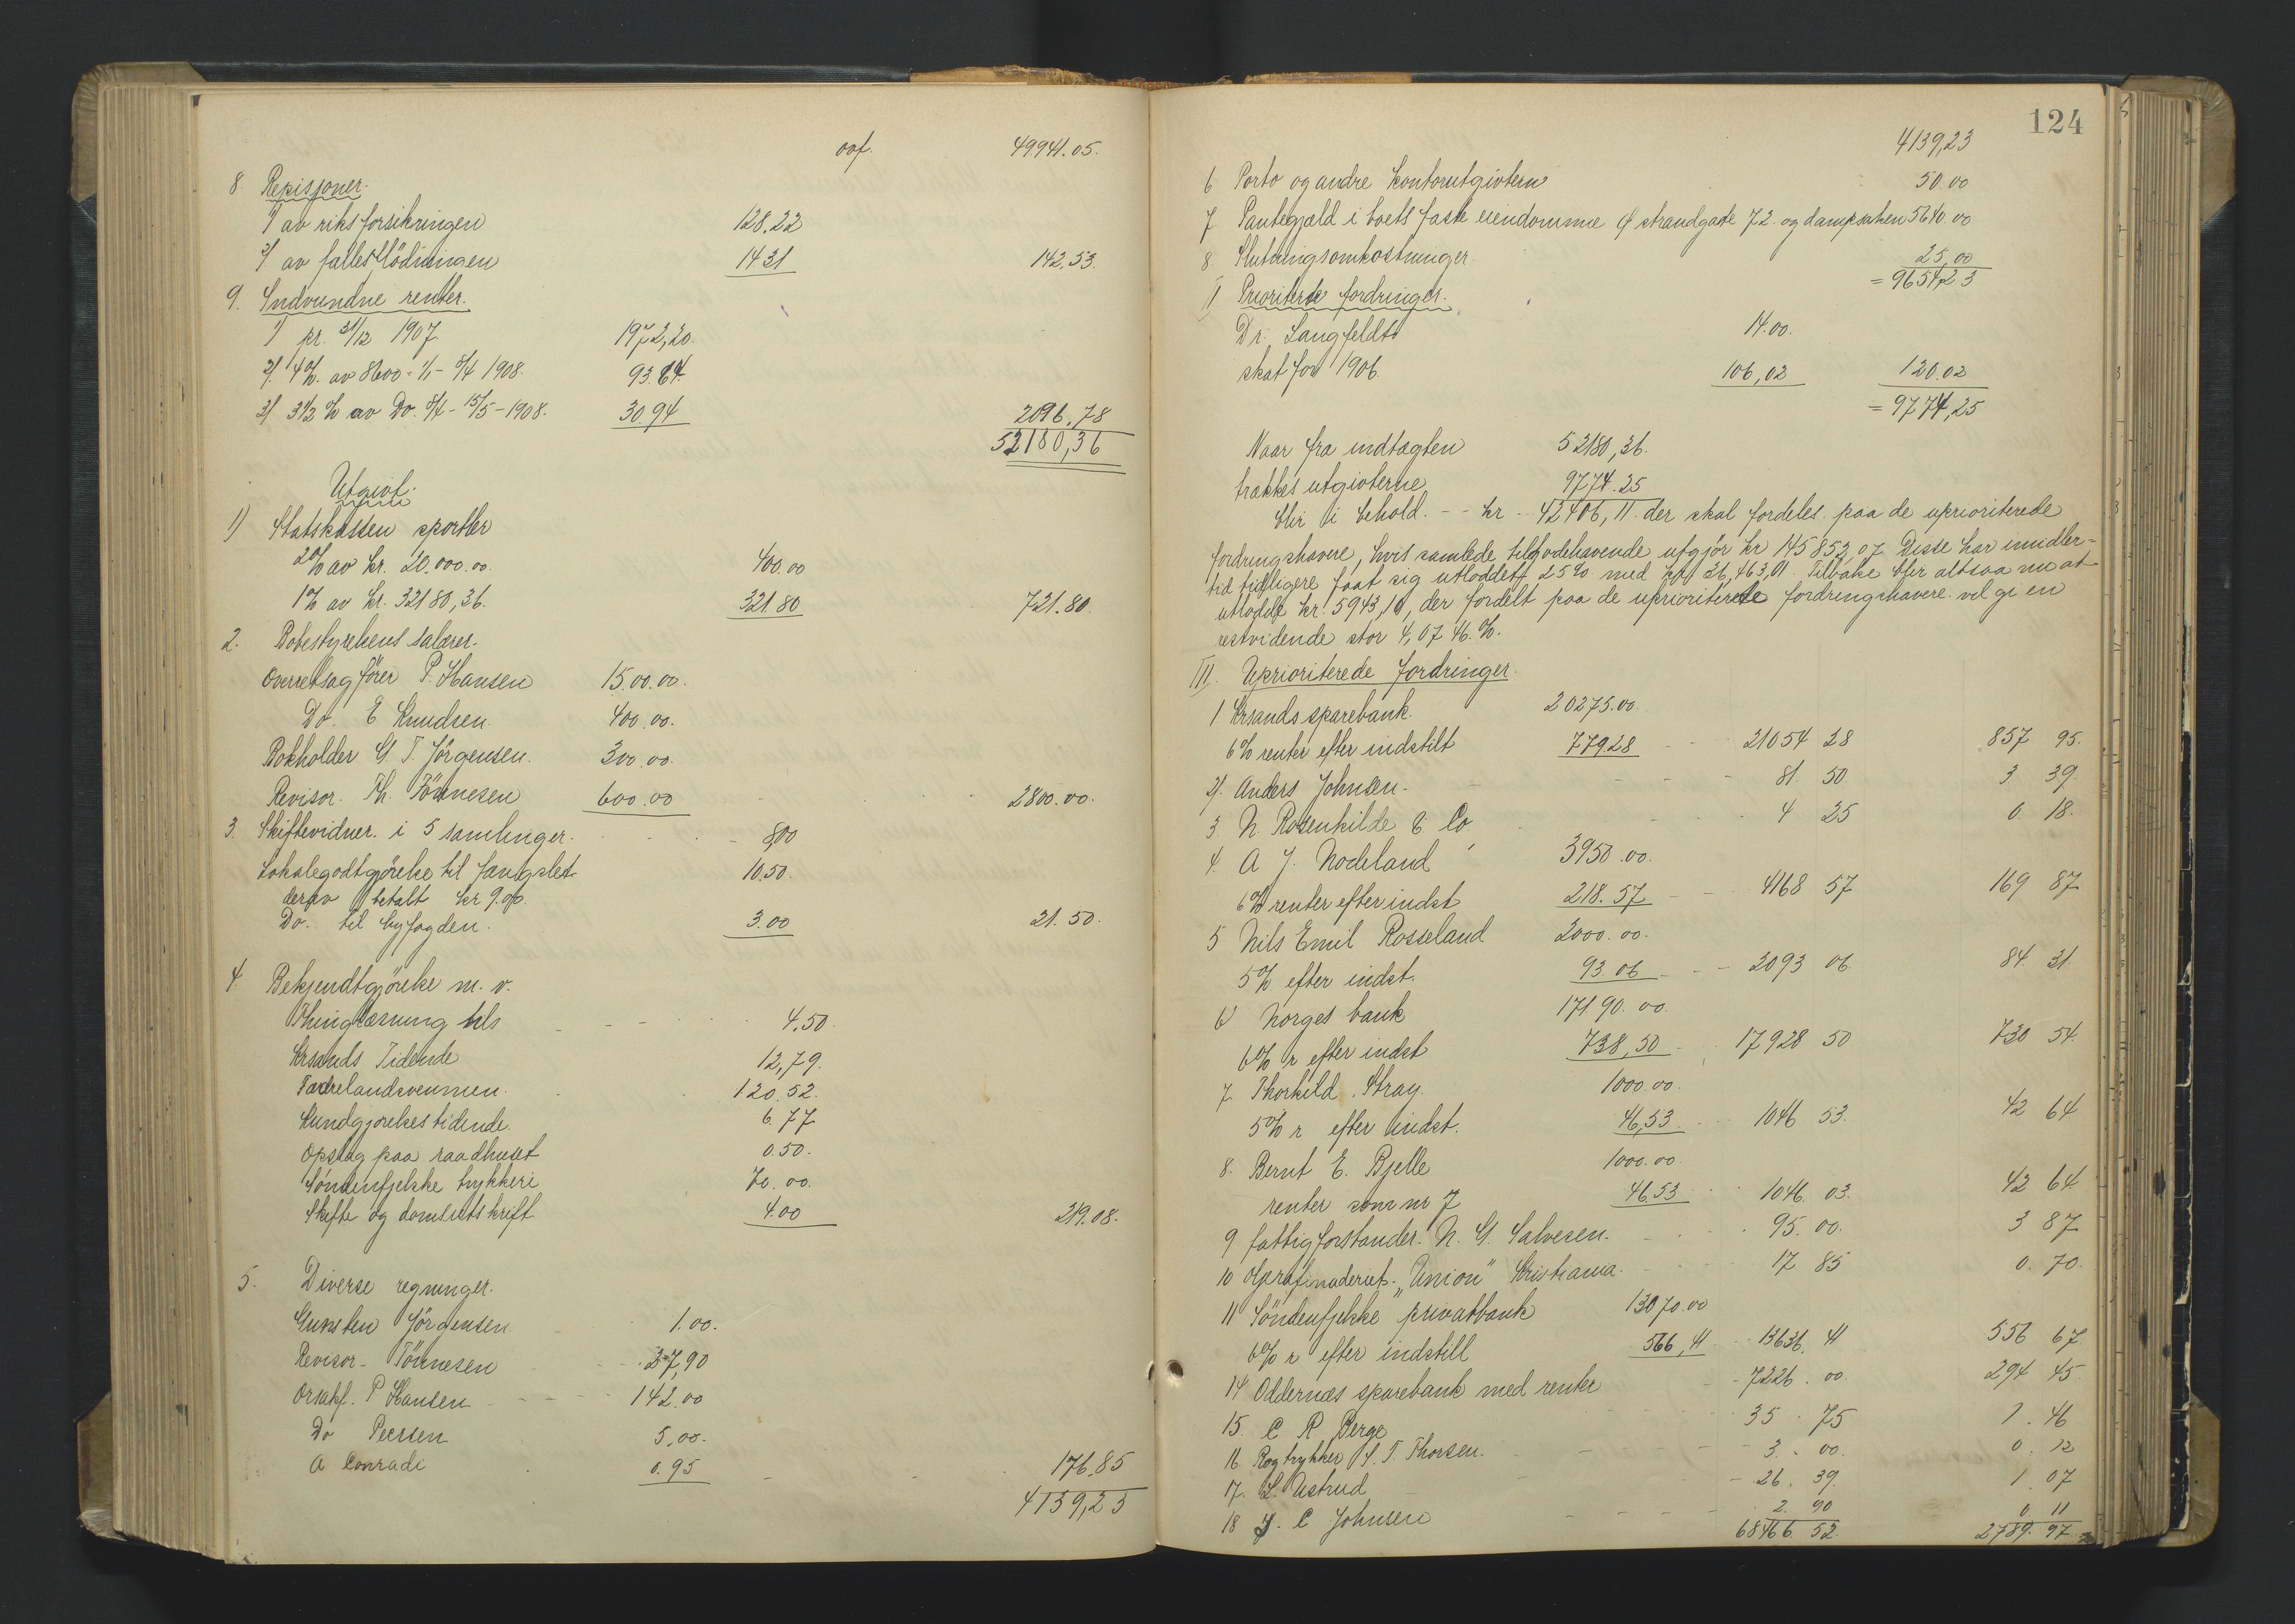 ovf. 49941.05.
8. Revisjoner.
1) av riksforsikringen 128.22
2) av fælles lödningen 14 31 142,53.
9. Indvundne renter.
1) pr. 31/12 1907 1972,20.
2) 4%. av 8600 - 1/1 - 8/4 1908. 93.64.
3) 3 1/2 % av Do. 8/4 - 15/5 - 1908. 30.94 2096.78
52180,36
Utgivt.
1) Statskassen sportler
2% av kr. 20.000.00. 400.00
1% av kr. 32180,36. 321.80 721.80.
2. Bobestyrelsens salærer.
Overretsagfører P. Hansen 15.00.00.
Do. E Knudsen 400.00.
Bokholder G. T. Jörgensen. 300.00.
Revisor. Th. Tönnesen 600.00 2800.00.
3. Skiftevidner. i 5 samlinger. 8,00
Lokalegodtgjörelse til fængslet 10.50.
derav betalt kr 9.00.
Do. til byfogden. 3.00 21.50.
4. Bekjendtgjörelse m. v.
Thinglæsning tils 4.50.
Krsands Tidende 12,79.
Fædrelandsvennen. 120.52.
Kundgjörelsestidende. 6.77
Opslag paa raadhuset 0.50.
Söndenfjelske trykkeri 70.00.
Skifte og domsutskrift 4.00 219.08.
5. Diverse regninger.
Gunsten Jörgensen 1.00.
Revisor - Tönnesen 27,90
Orsakf. P Hansen 142.00
Do Peersen 5,00.
A Conradi 0.95 176.85
4139,23
124
4139,23
6 Porto og andre kontorutgivter 50.00
7. Pantegjæld i boets faste eiendomme Ø strandgate 72. og dampsaken 5640.00
8. Slutningsomkostninger. 25,00
= 9654,23
II Prioriterte fordringer.
Dr. Langfeldts 14.00.
skat for 1906. 106,02 120.02
= 9774,25
Naar fra indtægten 52180,36.
trækkes utgivterne 9774.25
blir i behold. - - kr - 42406,11. der skal fordeles paa de uprioriterede
fordringshavere, hvis samlede tilgodehavende utgjör kr 145852,07. Disse har imidler-
tid tidligere faat sig utloddet 25% med kr. 36,463,01. Tilbake blir altsaa nu at
utlodde kr. 5943,10, der fordelt paa de uprioriterede fordringshavere vil gi en
restvidende stor 4,07 46.%.
III. Uprioriterede fordringer.
1 Krsands sparebank. 20275.00.
6% renter efter indstilt 779.28 21054 28 857 95.
2). Anders Johnsen. 81. 50 3. 39.
3. N. Rosenkilde & Co 4 25 0. 18.
4. A J. Nodeland 3950.00.
6% renter efter indst 218.57 4168 57 169 87
5 Nils Emil Rosseland 2000.00.
5% efter indst. 93.06 2093 06. 84 31.
6 Norges bank 17190.00.
6% r efter indst 738,50 17928 50 730 54.
7. Thorkild. Stray. 1000.00.
5% r efter indst. 46,53 1046 53. 42 64
8. Bernt E. Bjelle 1000.00.
renter som nr 7 46.53 1046. 03. 42 64.
9 fattigforstander. N. G. Salvesen. 95.00. 3 87
10 Oljerafinaderiet. "Union" Kristiania. 17 85 0. 70.
11 Söndenfjelske privatbank 13070.00
6% r efter indstill 566,41 13636. 41 556 67
14 Oddernæs sparebank med renter 7226.00. 294 45.
15. C R Berge 35. 75 1. 46
16. Bogtrykker S. T. Thorsen. 3. 00. 0. 12
17. L. Ustrud 26. 39. 1. 07
18 J. C Johnsen 2. 90 0 11
68466 52. 2789. 97